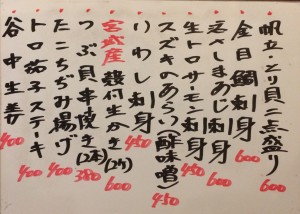 帆立・とり貝二点盛り 600
金目鯛刺身 600
活〆しまあじ刺身 600
生トロサーモン刺身 450
スズキのあらい(酢味噌) 450
いわし刺身 450
宮城産 殻付生かき(2ケ) 600
つぶ貝串焼き(2本) 380
たこちぢみ揚げ 400
トロ茄子ステーキ 400
谷中生姜 400